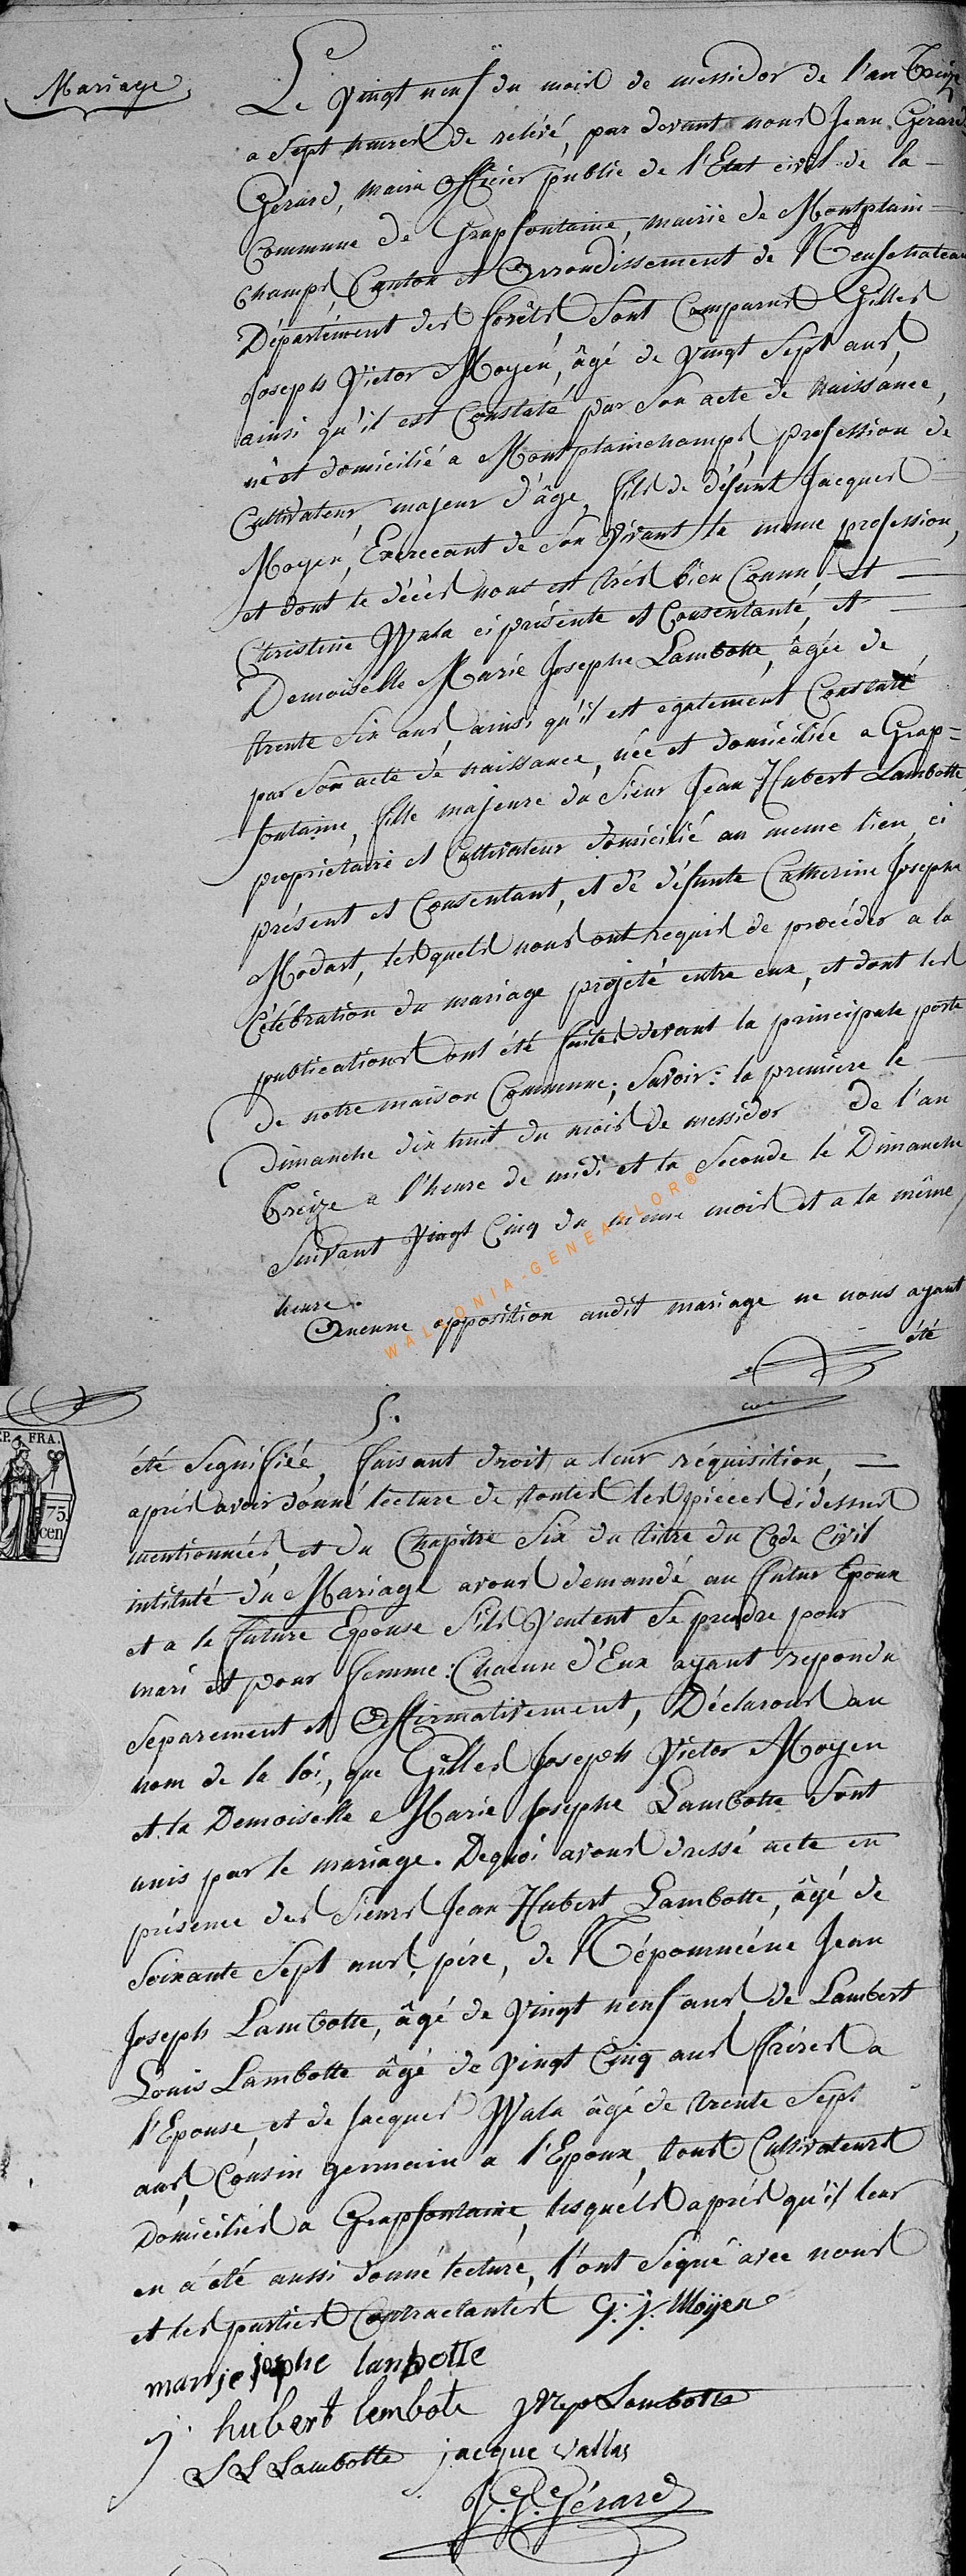 Mariage
Le Vingt neuf du mois de messidor de l'an Treize
a Sept heures de relévé, par devant nous Jean Gérard
Gérard, maire officier public de l'Etat civil de la
Commune de Grapfontaine, mairie de Montplain=
champs, Canton et Arrondissement de Neufchateau
Département des forêts Sont Comparus Gilles
Joseph Victor Moyen, âgé de Vingt Sept ans,
ainsi qu'il est Constaté par Son acte de Naissance,
né et domicilié a Montplainchamps, profession de
Cultivateur, majeur d'âge, fils de défunt Jacques
Moyen, Exerceant de Son Vivant la meme profession,
et dont le décès nous est très bien Connu, et
Christine Wala ci présente et Consentante, et
Demoiselle Marie Josephe Lambotte, âgée de
trente Six ans, ainsi qu'il est egalement Constaté
par Son acte de naissance, née et domiciliée a Grap=
fontaine, fille majeure du Sieur Jean Hubert Lambotte,
propriétaire et Cultivateur domicilié au meme lieu, ci
présent et Consentant, et de défunte Catherine Josephe
Modart, lesquels nous ont requis de procéder a la
Célébration du mariage projeté entre eux, et dont les
publications ont été faites devant la principale porte
de notre maison Commune; Savoir: la première le
dimanche dix huit du mois de messidor de l'an
treize a l'heure de midi et la Seconde le Dimanche
Suivant Vingt Cinq du meme mois et a la même
heure.
Aucune opposition audit mariage ne nous ayant
été
WALLONIA-GENEAFLOR®
5.
EP. FRA.
75
cen
été Signifiée, faisant droit a leur réquisition,
après avoir donné lecture de toutes les pièces ci dessus
mentionnées, et du Chapitre Six du titre du Code Civil
intitulé du Mariage avons demandé au futur Epoux
et a la future Epouse S'ils Veulent Se prendre pour
mari et pour femme: Chacun d'Eux ayant repondu
Separement et Affirmativement, Déclarons au
nom de la loi, que Gilles Joseph Victor Moyen
et la Demoiselle Marie Josephe Lambotte Sont
unis par le mariage. De quoi avons dressé acte en
présence des Sieurs Jean Hubert Lambotte, âgé de
Soixante Sept ans, père, de Népomucéne Jean
Joseph Lambotte, âgé de Vingt neuf ans, de Lambert
Louis Lambotte âgé de Vingt Cinq ans frères a
l'Epouse, et de Jacques Wala âgé de trente Sept
ans, Cousin germain a l'Epoux, tous Cultivateurs
Domiciliés a Grapfontaine, lesquels après qu'il leur
en a été aussi donné lecture, l'ont Signé avec nous
et les parties Contractantes G: j: Moÿen
marije josphe lanbotte
j. hubert lembote Lambotte
L L Lambotte jacque vallas
J. G. Gérard